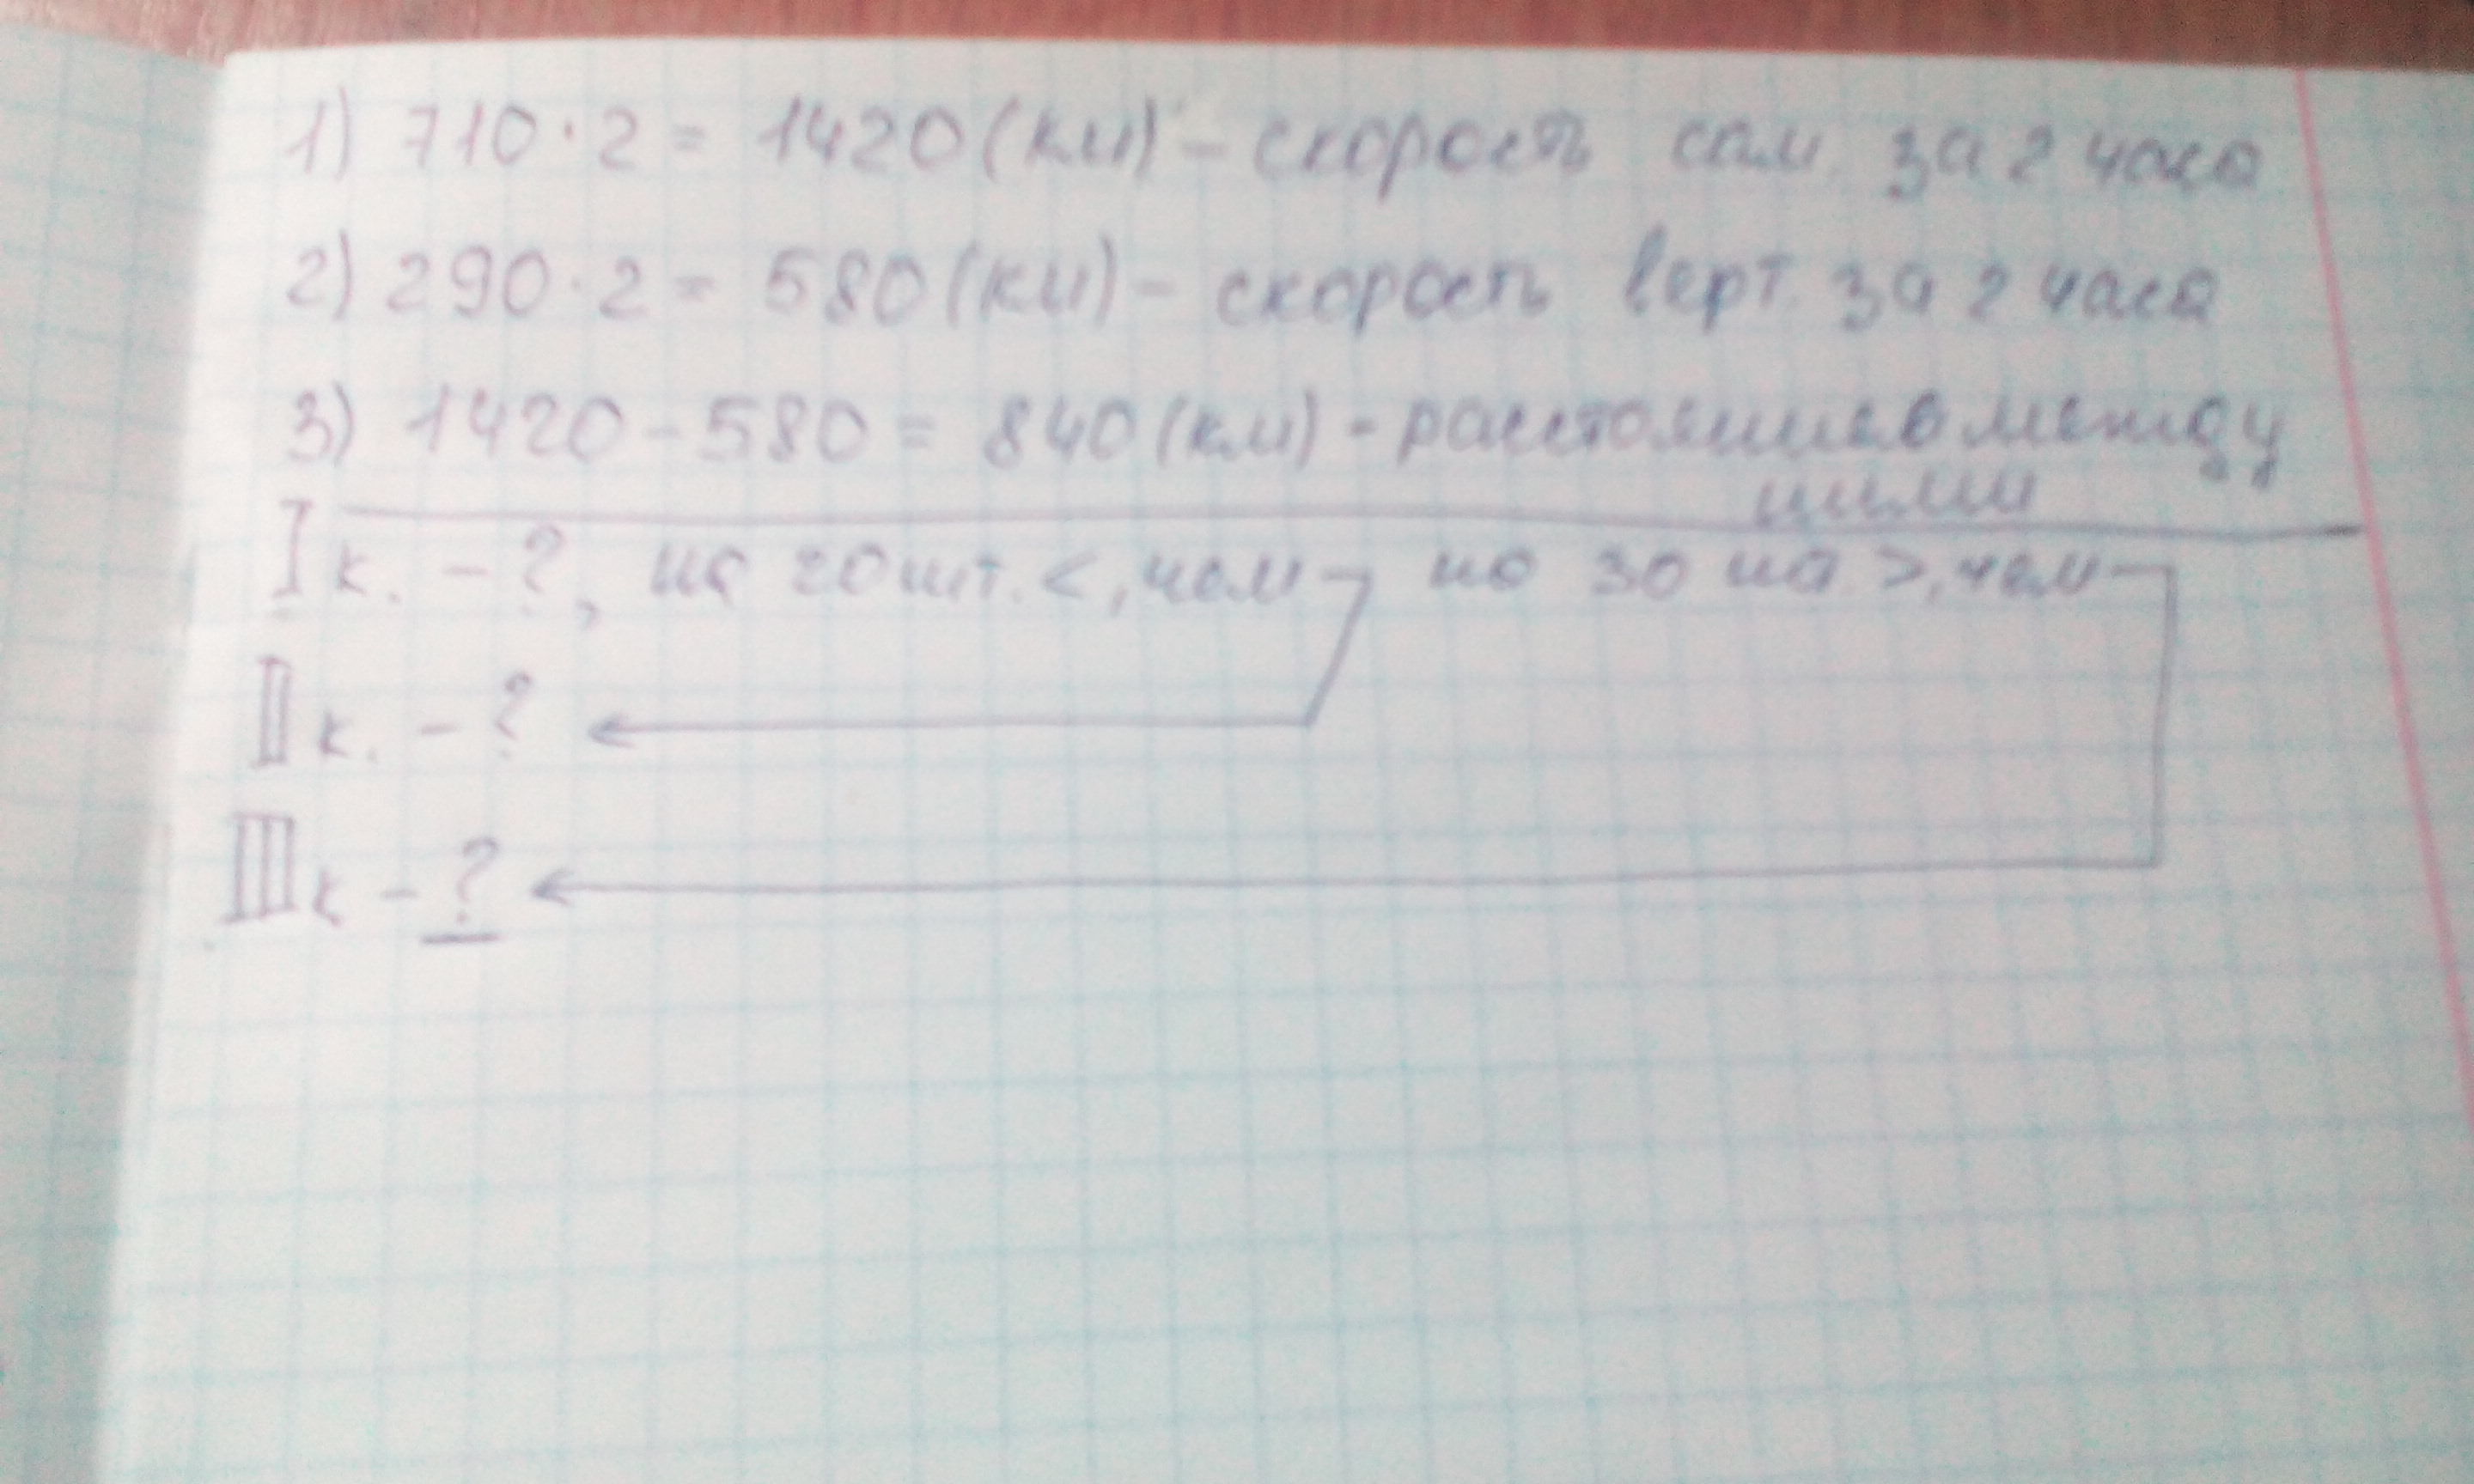 1) 710·2 = 1420(км) - скорость сам. за 2 часа
2) 290·2 = 580(км) - скорость верт. за 2 часа
3) 1420-580 = 840(км) - расстояние между
ними
I к. - ?, на 20 шт. <, чем но 30 на >, чем
II к. - ?
III к - ?